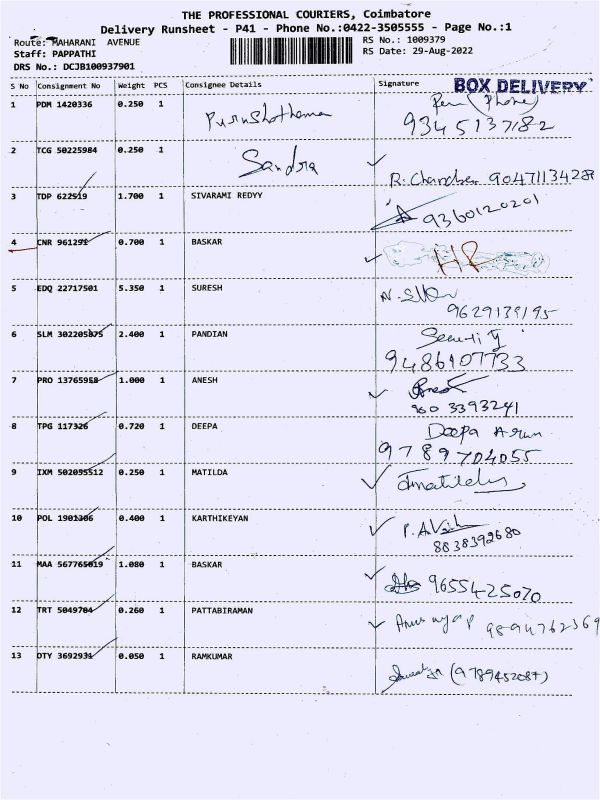 THE PROFESSIONAL COURIERS, Coimbatore
Delivery Runsheet - P41 - Phone No.:0422-3505555 - Page No.:1
Route: MAHARANI AVENUE
Staff: PAPPATHI
DRS No.: DCJB100937901
RS No.: 1009379
RS Date: 29-Aug-2022
S No Consignment No Weight PCS Consignee Details Signature BOX DELIVERY
1 PDM 1420336 0.250 1 Purushothaman (Phone)
9345137182
2 TCG 50225984 0.250 1 Sandra
R. Chandber 9047113428
3 TDP 622519 1.700 1 SIVARAMI REDYY 9360120201
4 CNR 961291 0.700 1 BASKAR
5 EDQ 22717501 5.350 1 SURESH
9629139195
6 SLM 302205875 2.400 1 PANDIAN Security
9486107733
7 PRO 13765958 1.000 1 ANESH
960 3393241
8 TPG 117326 0.720 1 DEEPA Deepa Arun
9789704055
9 IXM 502055512 0.250 1 MATILDA Jmatilda
10 POL 1901306 0.400 1 KARTHIKEYAN
8838392680
11 MAA 567765019 1.080 1 BASKAR 9655425020
12 TRT 5049704 0.260 1 PATTABIRAMAN 9894762369
13 DTY 3692931 0.050 1 RAMKUMAR (9789452087)